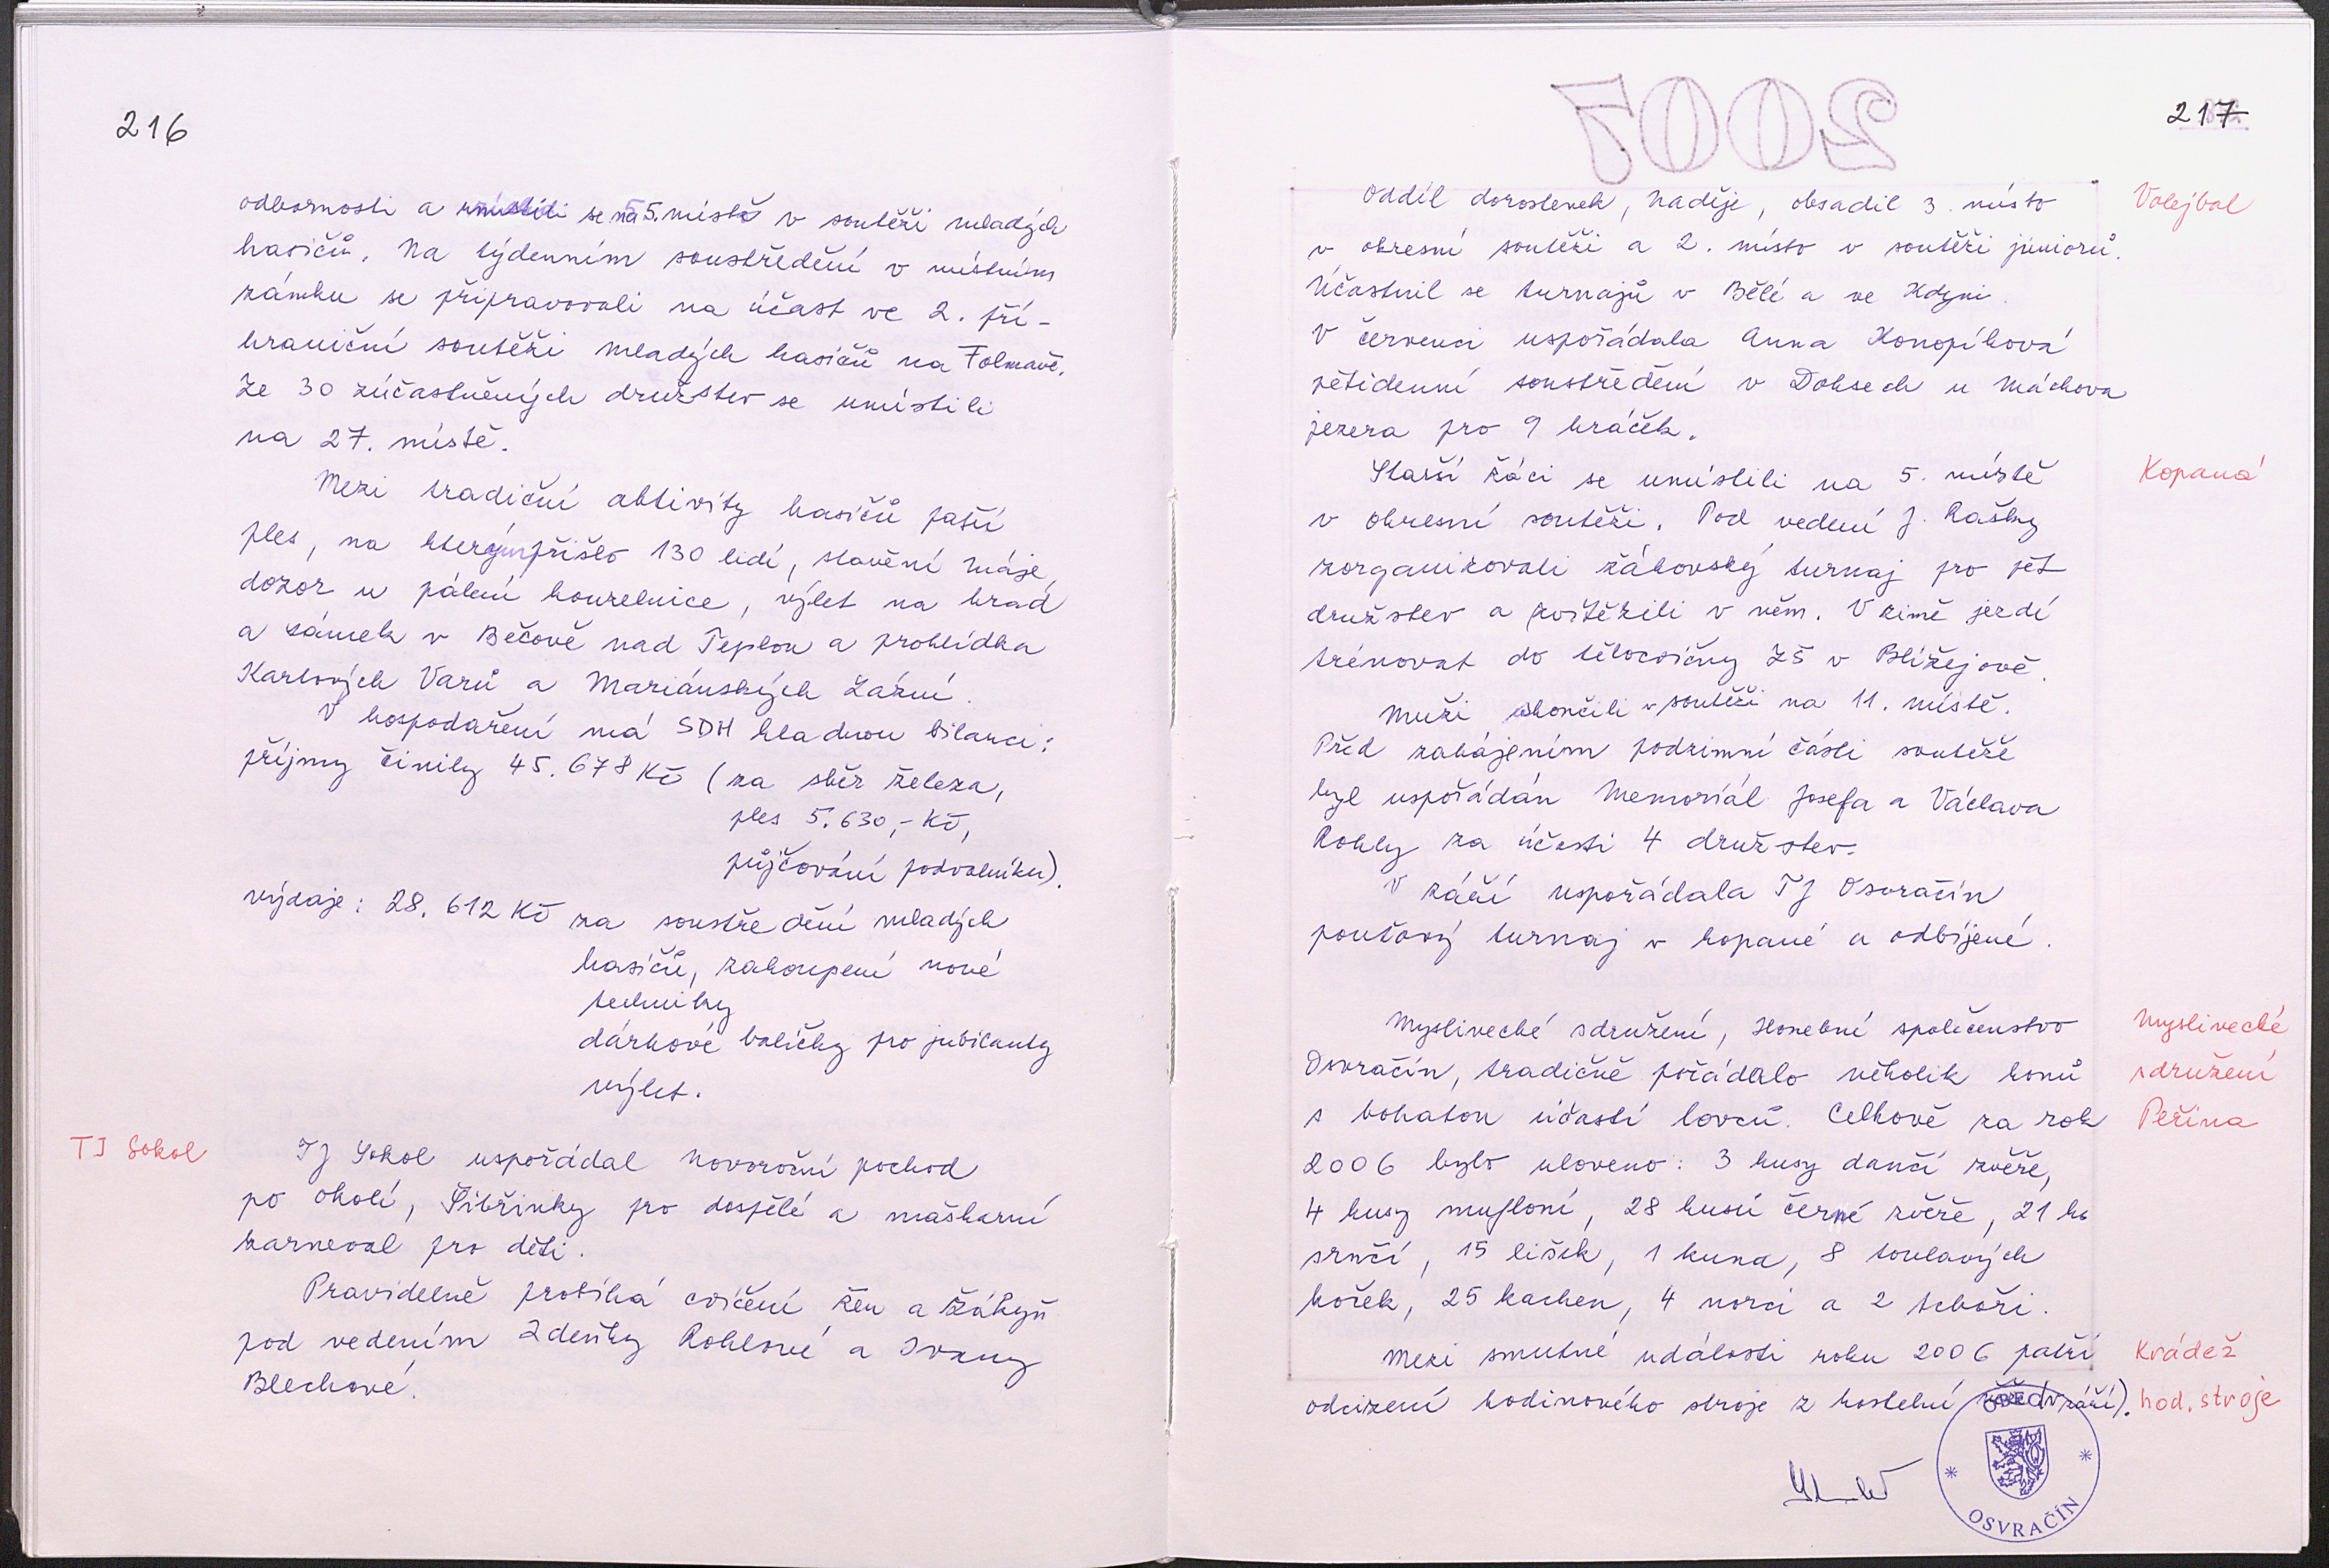 216
odbornosti a umístili se na 5. místě v soutěži mladých
hasičů. Na týdenním soustředění v místním
zámku se připravovali na účast ve 2. pří-
hraniční soutěži mladých hasičů na Folmavě.
Ze 30 zúčastněných družstev se umístili
na 27. místě.
Mezi tradiční aktivity hasičů patří
ples, na kterým přišlo 130 lidí, stavění máje,
dozor u pálení kouzelnice, výlet na hrad
a zámek v Bečově nad Teplou a prohlídka
Karlových Varů a Mariánských Lázní.
V hospodaření má SDH kladnou bilanci:
příjmy činily 45.678 Kč (za sběr železa,
ples 5.630,- Kč,
půjčování podvalníku).
výdaje: 28.612 Kč za soustředění mladých
hasičů, zakoupení nové
techniky
dárkové balíčky pro jubilanty
výlet.
TJ Sokol
TJ Sokol uspořádal Novoroční pochod
po okolí, Šibřinky pro dospělé a maškarní
karneval pro děti.
Pravidelně probíhá cvičení žen a žákyň
pod vedením Zdeňky Rohlové a Ivany
Blechové.
2007
217
Oddíl dorostenek, Naděje, obsadil 3. místo
Volejbal
v okresní soutěži a 2. místo v soutěži juniorů.
Účastnil se turnajů v Bělé a ve Kdyni.
V červenci uspořádala Anna Konopíková
pětidenní soustředění v Doksech u Máchova
jezera pro 9 hráček.
Starší žáci se umístili na 5. místě
Kopaná
v okresní soutěži. Pod vedení J. Rašky
zorganizovali žákovský turnaj pro pět
družstev a zvítězili v něm. V zimě jezdí
trénovat do tělocvičny ZŠ v Blížejově.
Muži skončili v soutěži na 11. místě.
Před zahájením podzimní části soutěže
byl uspořádán Memoriál Josefa a Václava
Rohly za účasti 4 družstev.
V září uspořádala TJ Osvračín
pouťový turnaj v kopané a odbíjené.
Myslivecké sdružení, Honební společenstvo
Myslivecké
Osvračín, tradičně pořádalo několik honů
sdružení
s bohatou účastí lovců. Celkově za rok
Peřina
2006 bylo uloveno: 3 kusy dančí zvěře,
4 kusy mufloní, 28 kusů černé zvěře, 21 ks
srnčí, 15 lišek, 1 kuna, 8 toulavých
koček, 25 kachen, 4 norci a 2 tchoři.
Mezi smutné události roku 2006 patří
Krádež
odcizení hodinového stroje z kostelní věže (v září).
hod. stroje
OBEC
OSVRAČÍN